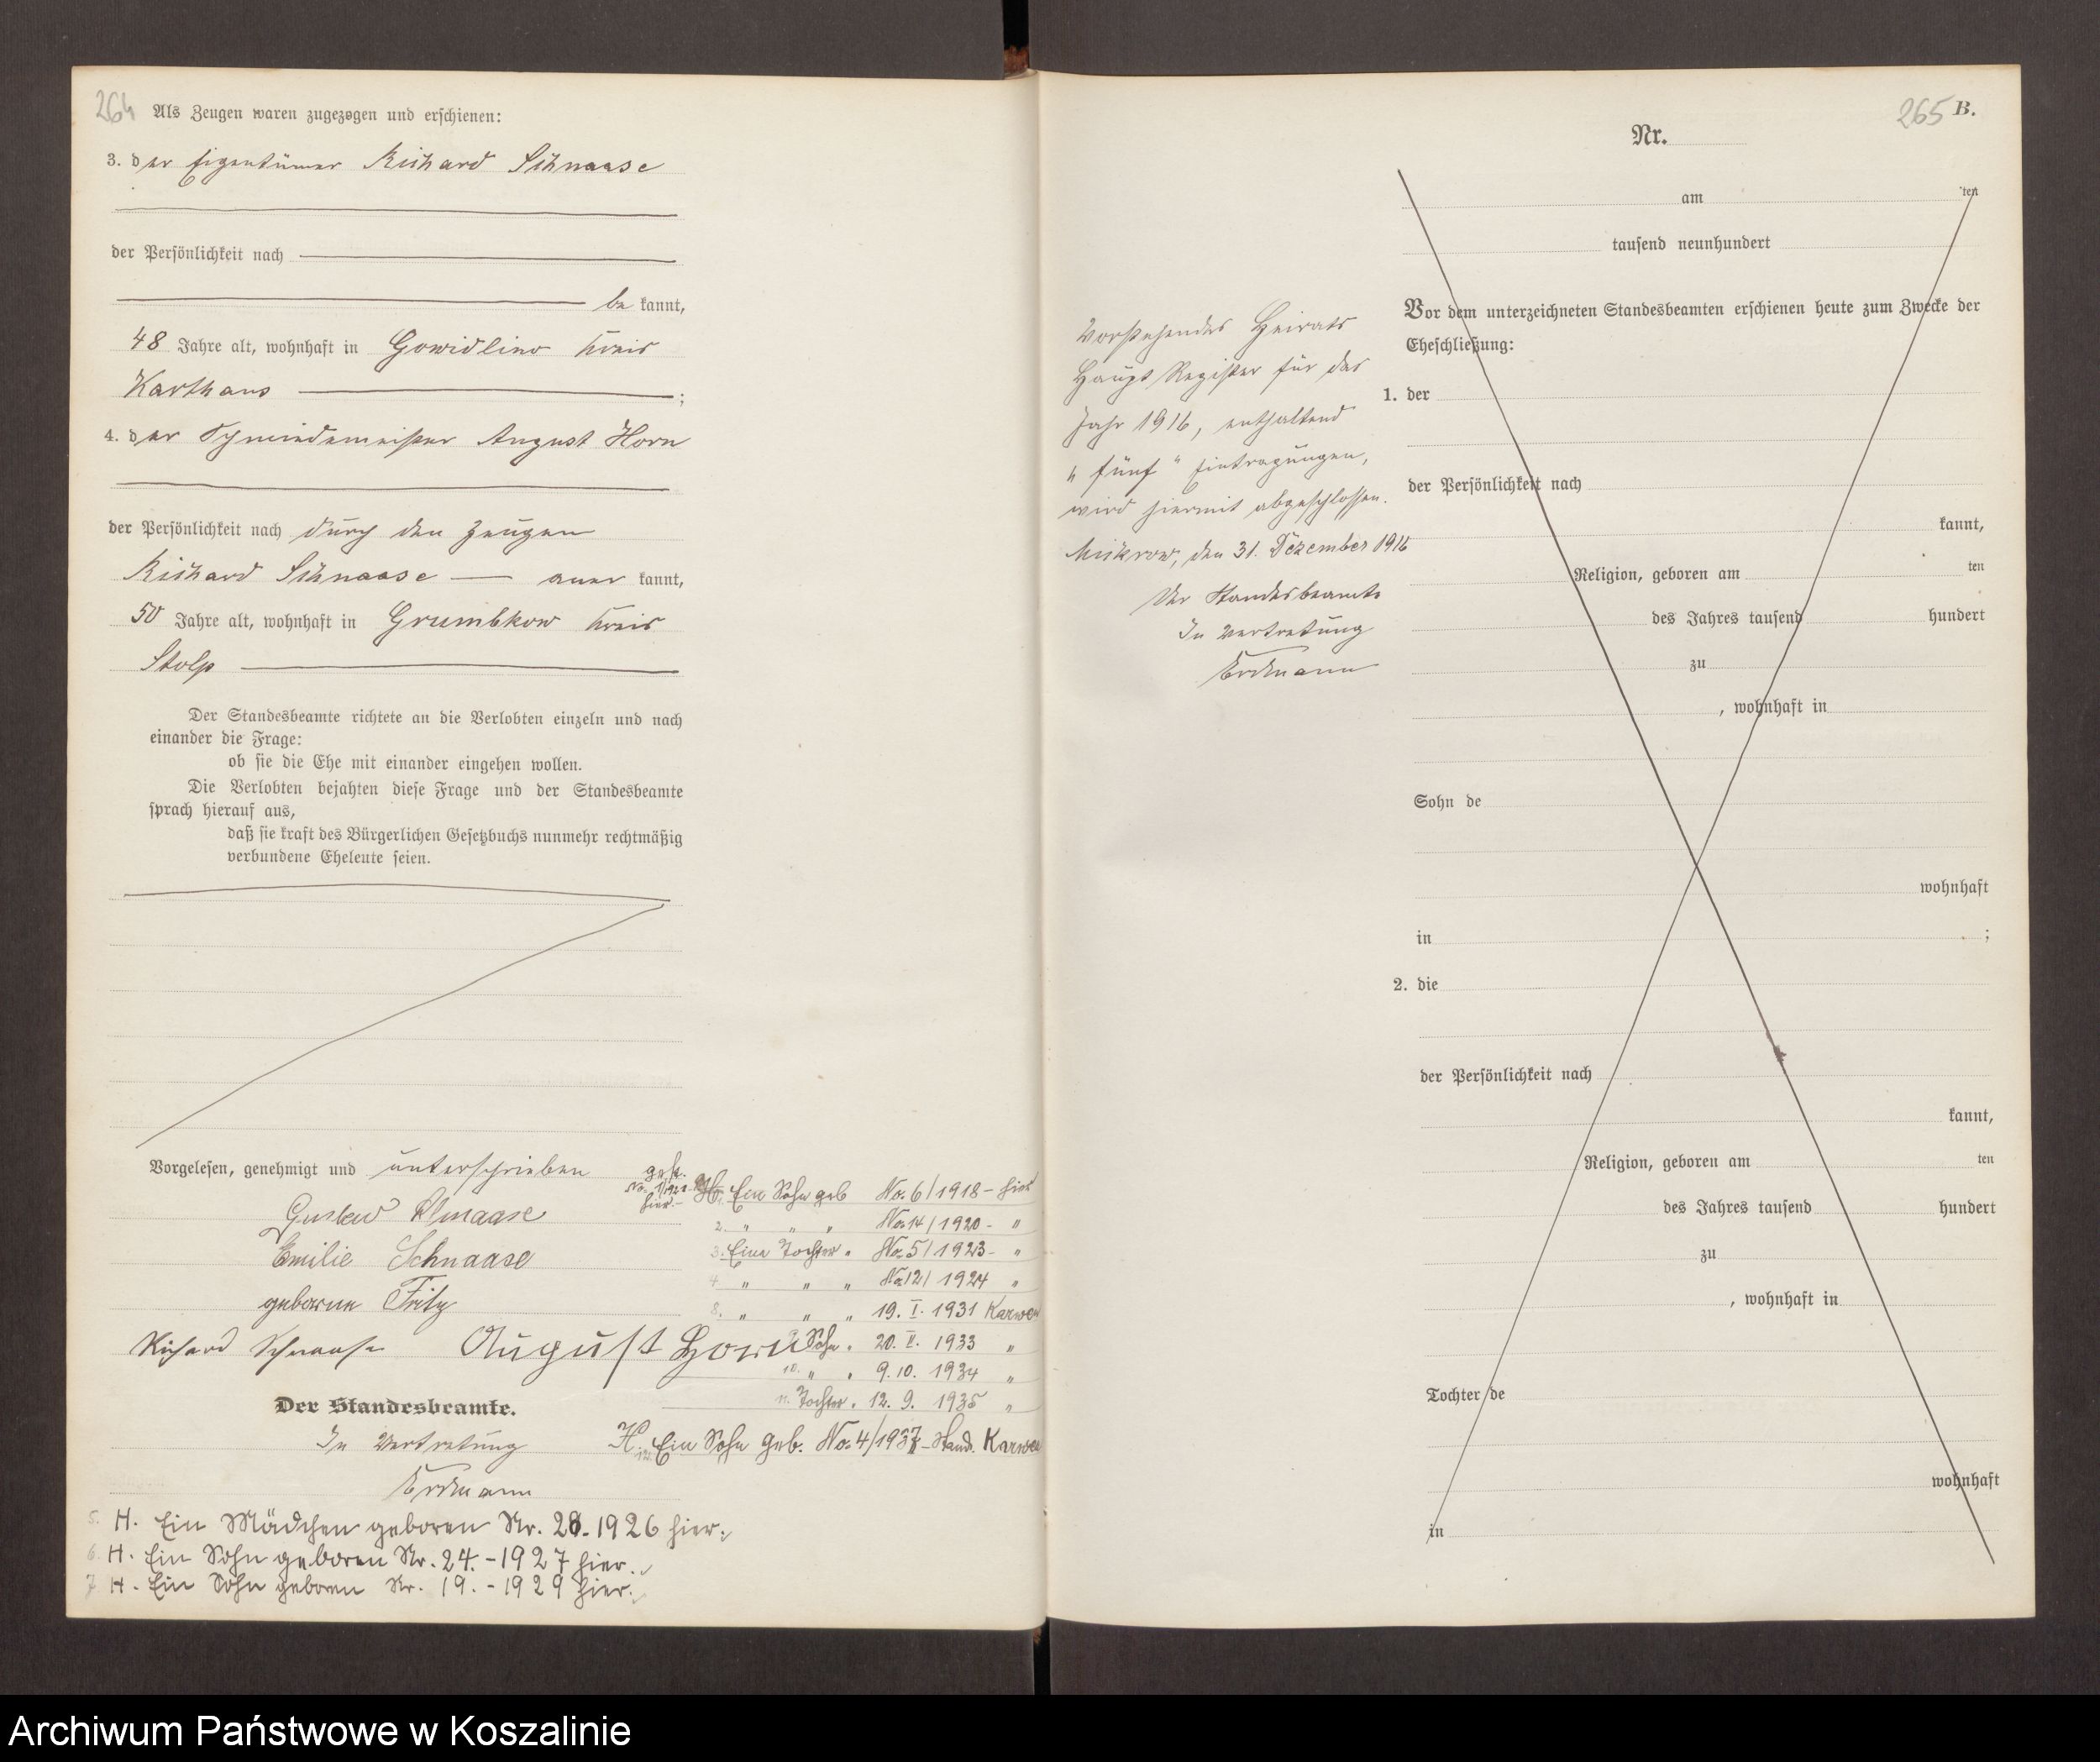 264
Als Zeugen waren zugezogen und erschienen:
3. der Eigentümer Richard Schnaase
der Persönlichkeit nach
be kannt,
48 Jahre alt, wohnhaft in Gowidlino Kreis
Karthaus ;
4. der Schmiedemeister August Horn
der Persönlichkeit nach durch den Zeugen
Richard Schnaase aner kannt,
50 Jahre alt, wohnhaft in Grumbkow Kreis
Stolp
Der Standesbeamte richtete an die Verlobten einzeln und nach
einander die Frage:
ob sie die Ehe mit einander eingehen wollen.
Die Verlobten bejahten diese Frage und der Standesbeamte
sprach hierauf aus,
daß sie kraft des Bürgerlichen Gesetzbuchs nunmehr rechtmäßig
verbundene Eheleute seien.
Vorgelesen, genehmigt und unterschrieben
Gustav Schnaase
Emilie Schnaase
geborne Fritz
Richard Schnaase August Horn
Der Standesbeamte.
In Vertretung
Erdmann
hier.-
1. Ein Sohn geb No. 6/1918 - hier
2. " " " No. 14/1920 - "
3. Eine Tochter " No. 5/1923 - "
4 " " " No. 12/1924 "
8. " " " 19. I. 1931 Karwen
9. Sohn " 20. II. 1933 "
10. " " 9. 10. 1934 "
11. Tochter " 12. 9. 1935 "
H. 12. Ein Sohn geb. No. 4/1937 - Stand. Karwen
5. H. Ein Mädchen geboren Nr. 28.-1926 hier.
6. H. Ein Sohn geboren Nr. 24.-1927 hier.
7. H. Ein Sohn geboren Nr. 19.-1929 hier.
265 B.
Nr.
am ten
tausend neunhundert
Vor dem unterzeichneten Standesbeamten erschienen heute zum Zwecke der
Eheschließung:
1. der
der Persönlichkeit nach
kannt,
Religion, geboren am ten
des Jahres tausend hundert
zu
, wohnhaft in
Sohn de
wohnhaft
in ;
2. die
der Persönlichkeit nach
kannt,
Religion, geboren am ten
des Jahres tausend hundert
zu
, wohnhaft in
Tochter de
wohnhaft
in
Vorstehendes Heirats
Haupt Register für das
Jahr 1916, enthaltend
"fünf" Eintragungen,
wird hiermit abgeschlossen.
Mickrow, den 31. Dezember 1916
Der Standesbeamte
In Vertretung
Erdmann
Archiwum Państwowe w Koszalinie